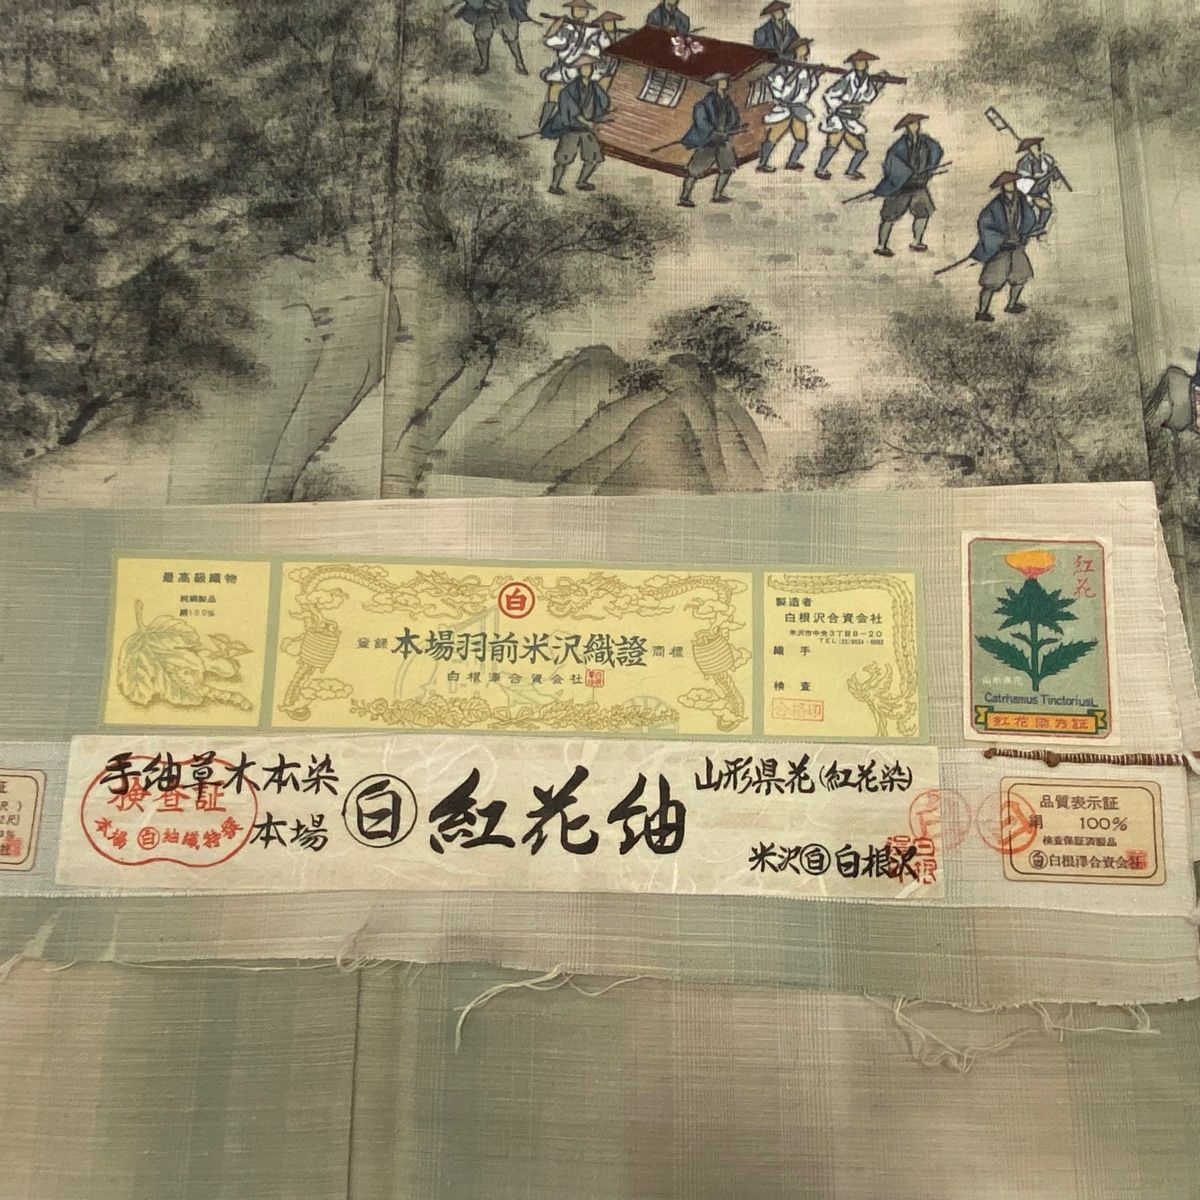 最高級織物
純絹製品
絹100%
白
登録 本場羽前米沢織證 商標
白根澤合資会社
製造者
白根沢合資会社
米沢市中央3丁目8-20
織手
検査
合格印
紅花
山形県花
Catrhamus Tinctorius L
紅花染乃証
手紬草木本染
検査証
本場 白 紬織特撰
本場
白 紅花紬
山形県花(紅花染)
米沢 白 白根沢
品質表示証
絹 100%
検査保証済製品
白 白根澤合資会社
証